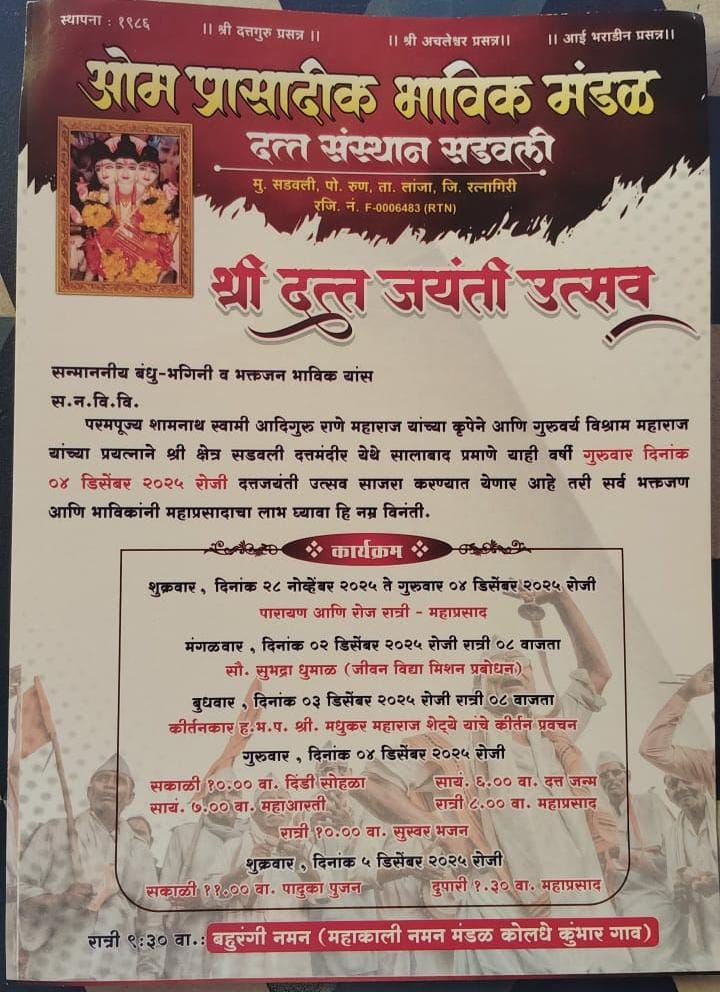 स्थापना : १९८६
।। श्री दत्तगुरु प्रसन्न ।।
।। श्री अचलेश्वर प्रसन्न।।
।। आई भराडीन प्रसन्न।।
ओम प्रासादीक भाविक मंडळ
दत्त संस्थान सडवली
मु. सडवली, पो. रुण, ता. लांजा, जि. रत्नागिरी
रजि. नं. F-0006483 (RTN)
श्री दत्त जयंती उत्सव
सन्माननीय बंधु-भगिनी व भक्तजन भाविक यांस
स.न.वि.वि.
परमपूज्य शामनाथ स्वामी आदिगुरु राणे महाराज यांच्या कृपेने आणि गुरुवर्य विश्राम महाराज
यांच्या प्रयत्नाने श्री क्षेत्र सडवली दत्तमंदीर येथे सालाबाद प्रमाणे याही वर्षी गुरुवार दिनांक
०४ डिसेंबर २०२५ रोजी दत्तजयंती उत्सव साजरा करण्यात येणार आहे तरी सर्व भक्तजण
आणि भाविकांनी महाप्रसादाचा लाभ घ्यावा हि नम्र विनंती.
कार्यक्रम
शुक्रवार , दिनांक २८ नोव्हेंबर २०२५ ते गुरुवार ०४ डिसेंबर २०२५ रोजी
पारायण आणि रोज रात्री - महाप्रसाद
मंगळवार , दिनांक ०२ डिसेंबर २०२५ रोजी रात्री ०८ वाजता
सौ. सुभद्रा धुमाळ (जीवन विद्या मिशन प्रबोधन)
बुधवार , दिनांक ०३ डिसेंबर २०२५ रोजी रात्री ०८ वाजता
कीर्तनकार ह.भ.प. श्री. मधुकर महाराज शेट्ये यांचे कीर्तन प्रवचन
गुरुवार , दिनांक ०४ डिसेंबर २०२५ रोजी
सकाळी १०.०० वा. दिंडी सोहळा सायं. ६.०० वा. दत्त जन्म
सायं. ७.०० वा. महाआरती रात्री ८.०० वा. महाप्रसाद
रात्री १०.०० वा. सुस्वर भजन
शुक्रवार , दिनांक ५ डिसेंबर २०२५ रोजी
सकाळी ११.०० वा. पादुका पुजन दुपारी १.३० वा. महाप्रसाद
रात्री ९:३० वा.: बहुरंगी नमन (महाकाली नमन मंडळ कोलधे कुंभार गाव)